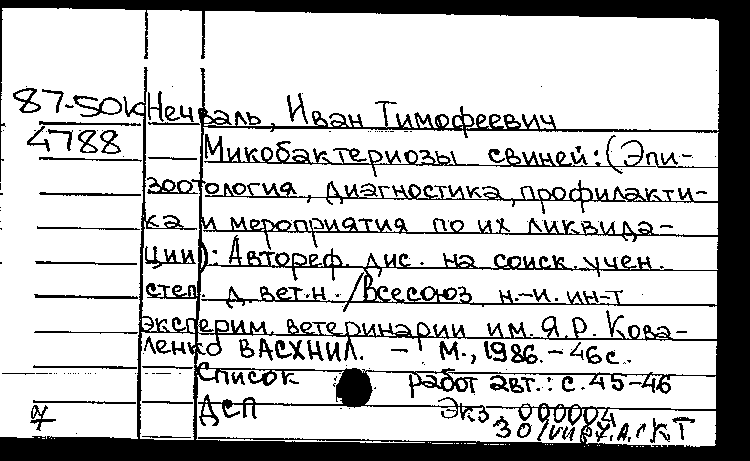 87-50к Нечваль, Иван Тимофеевич
4788 Микобактериозы свиней: (Эпи-
зоотология, диагностика, профилакти-
ка и мероприятия по их ликвида-
ции): Автореф. дис. на соиск. учен.
степ. д. вет. н. / Всесоюз. н.-и. ин-т
эксперим. ветеринарии им. Я.Р. Кова-
ленко ВАСХНИЛ. - М., 1986. - 46 с.
Список работ авт.: с. 45-46
ДСП Экз. 000004